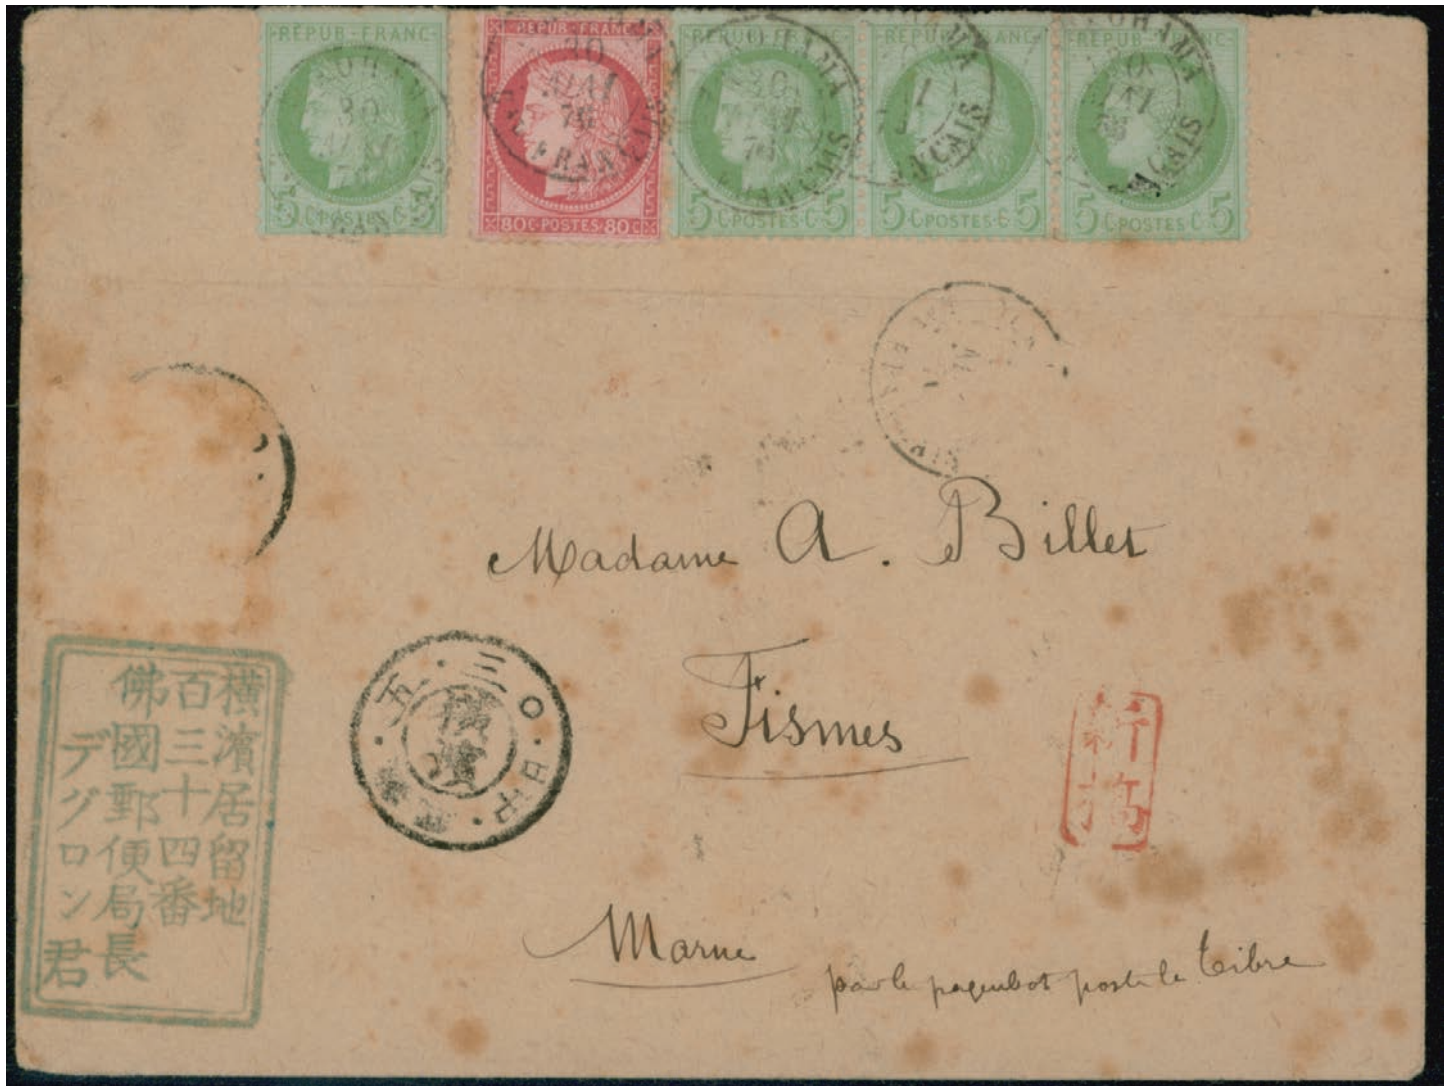 REPUB·FRANC
5 C·POSTES·C·5
REPUB·FRANC
80C·POSTES·80C
REPUB·FRANC
5 C·POSTES·C·5
REPUB·FRANC
5 C·POSTES·C·5
REPUB·FRANC
5 C·POSTES·C·5
30
MAI
76
Madame A. Billet
Fismes
Marne
par le paquebot poste le Tibre
横濱居留地
百三十四番
佛國郵便局長
デグロン君
横濱
五·三〇·日中·
新橋